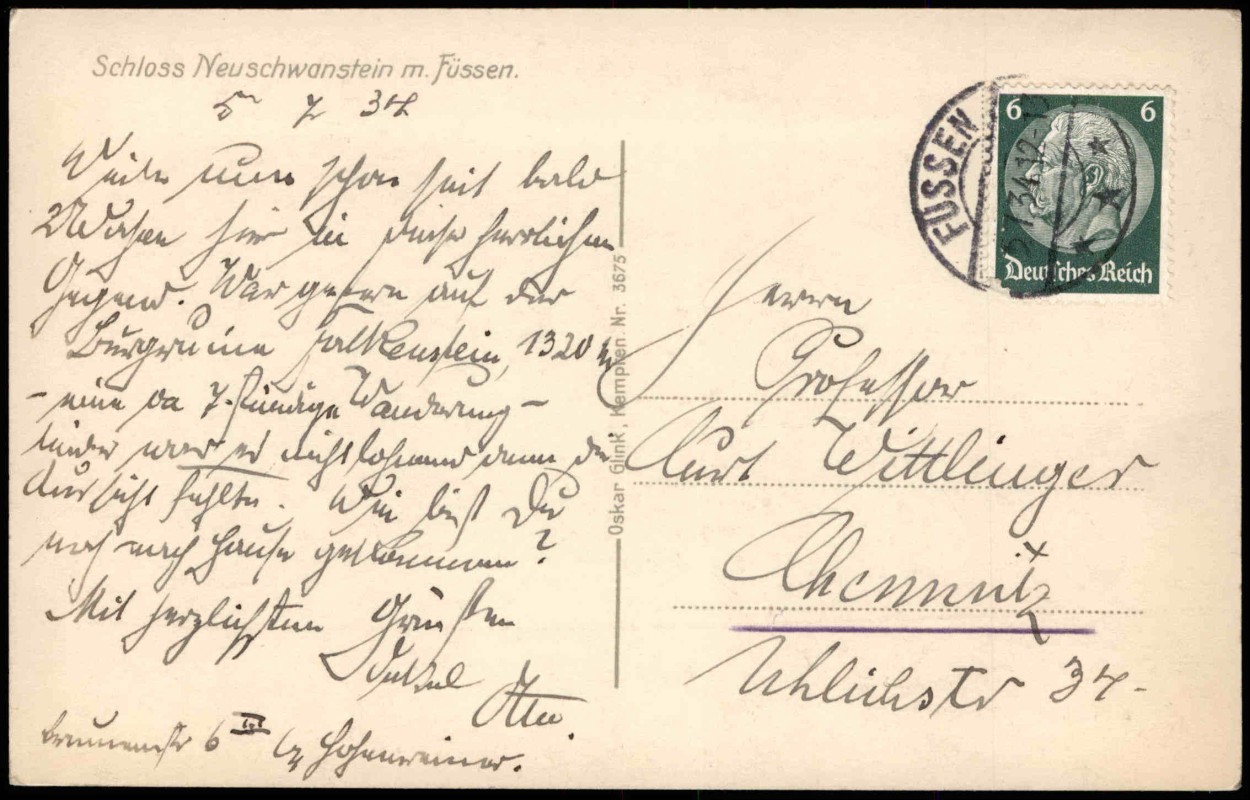 Schloss Neuschwanstein m. Füssen.
5 7 34
nun schon seit bald
2 Wochen hier in dieser herrlichen
Gegend. War gestern auf der
Burgruine Falkenstein, 1320 m
- eine ca 7-stündige Wanderung -
leider war es nicht lohnend denn die
Aussicht fehlte. Wie bist Du
noch nach Hause gekommen?
Mit herzlichsten Grüßen
Onkel
Otto.
Brunnenstr 6 III b/ Hohenreiner.
Oskar Glink, Kempten. Nr. 3675
FÜSSEN
5.7.34.12-13
6 6
Deutsches Reich
Herrn
Professor
Curt Wittlinger
Chemnitz
Uhlichstr 34-